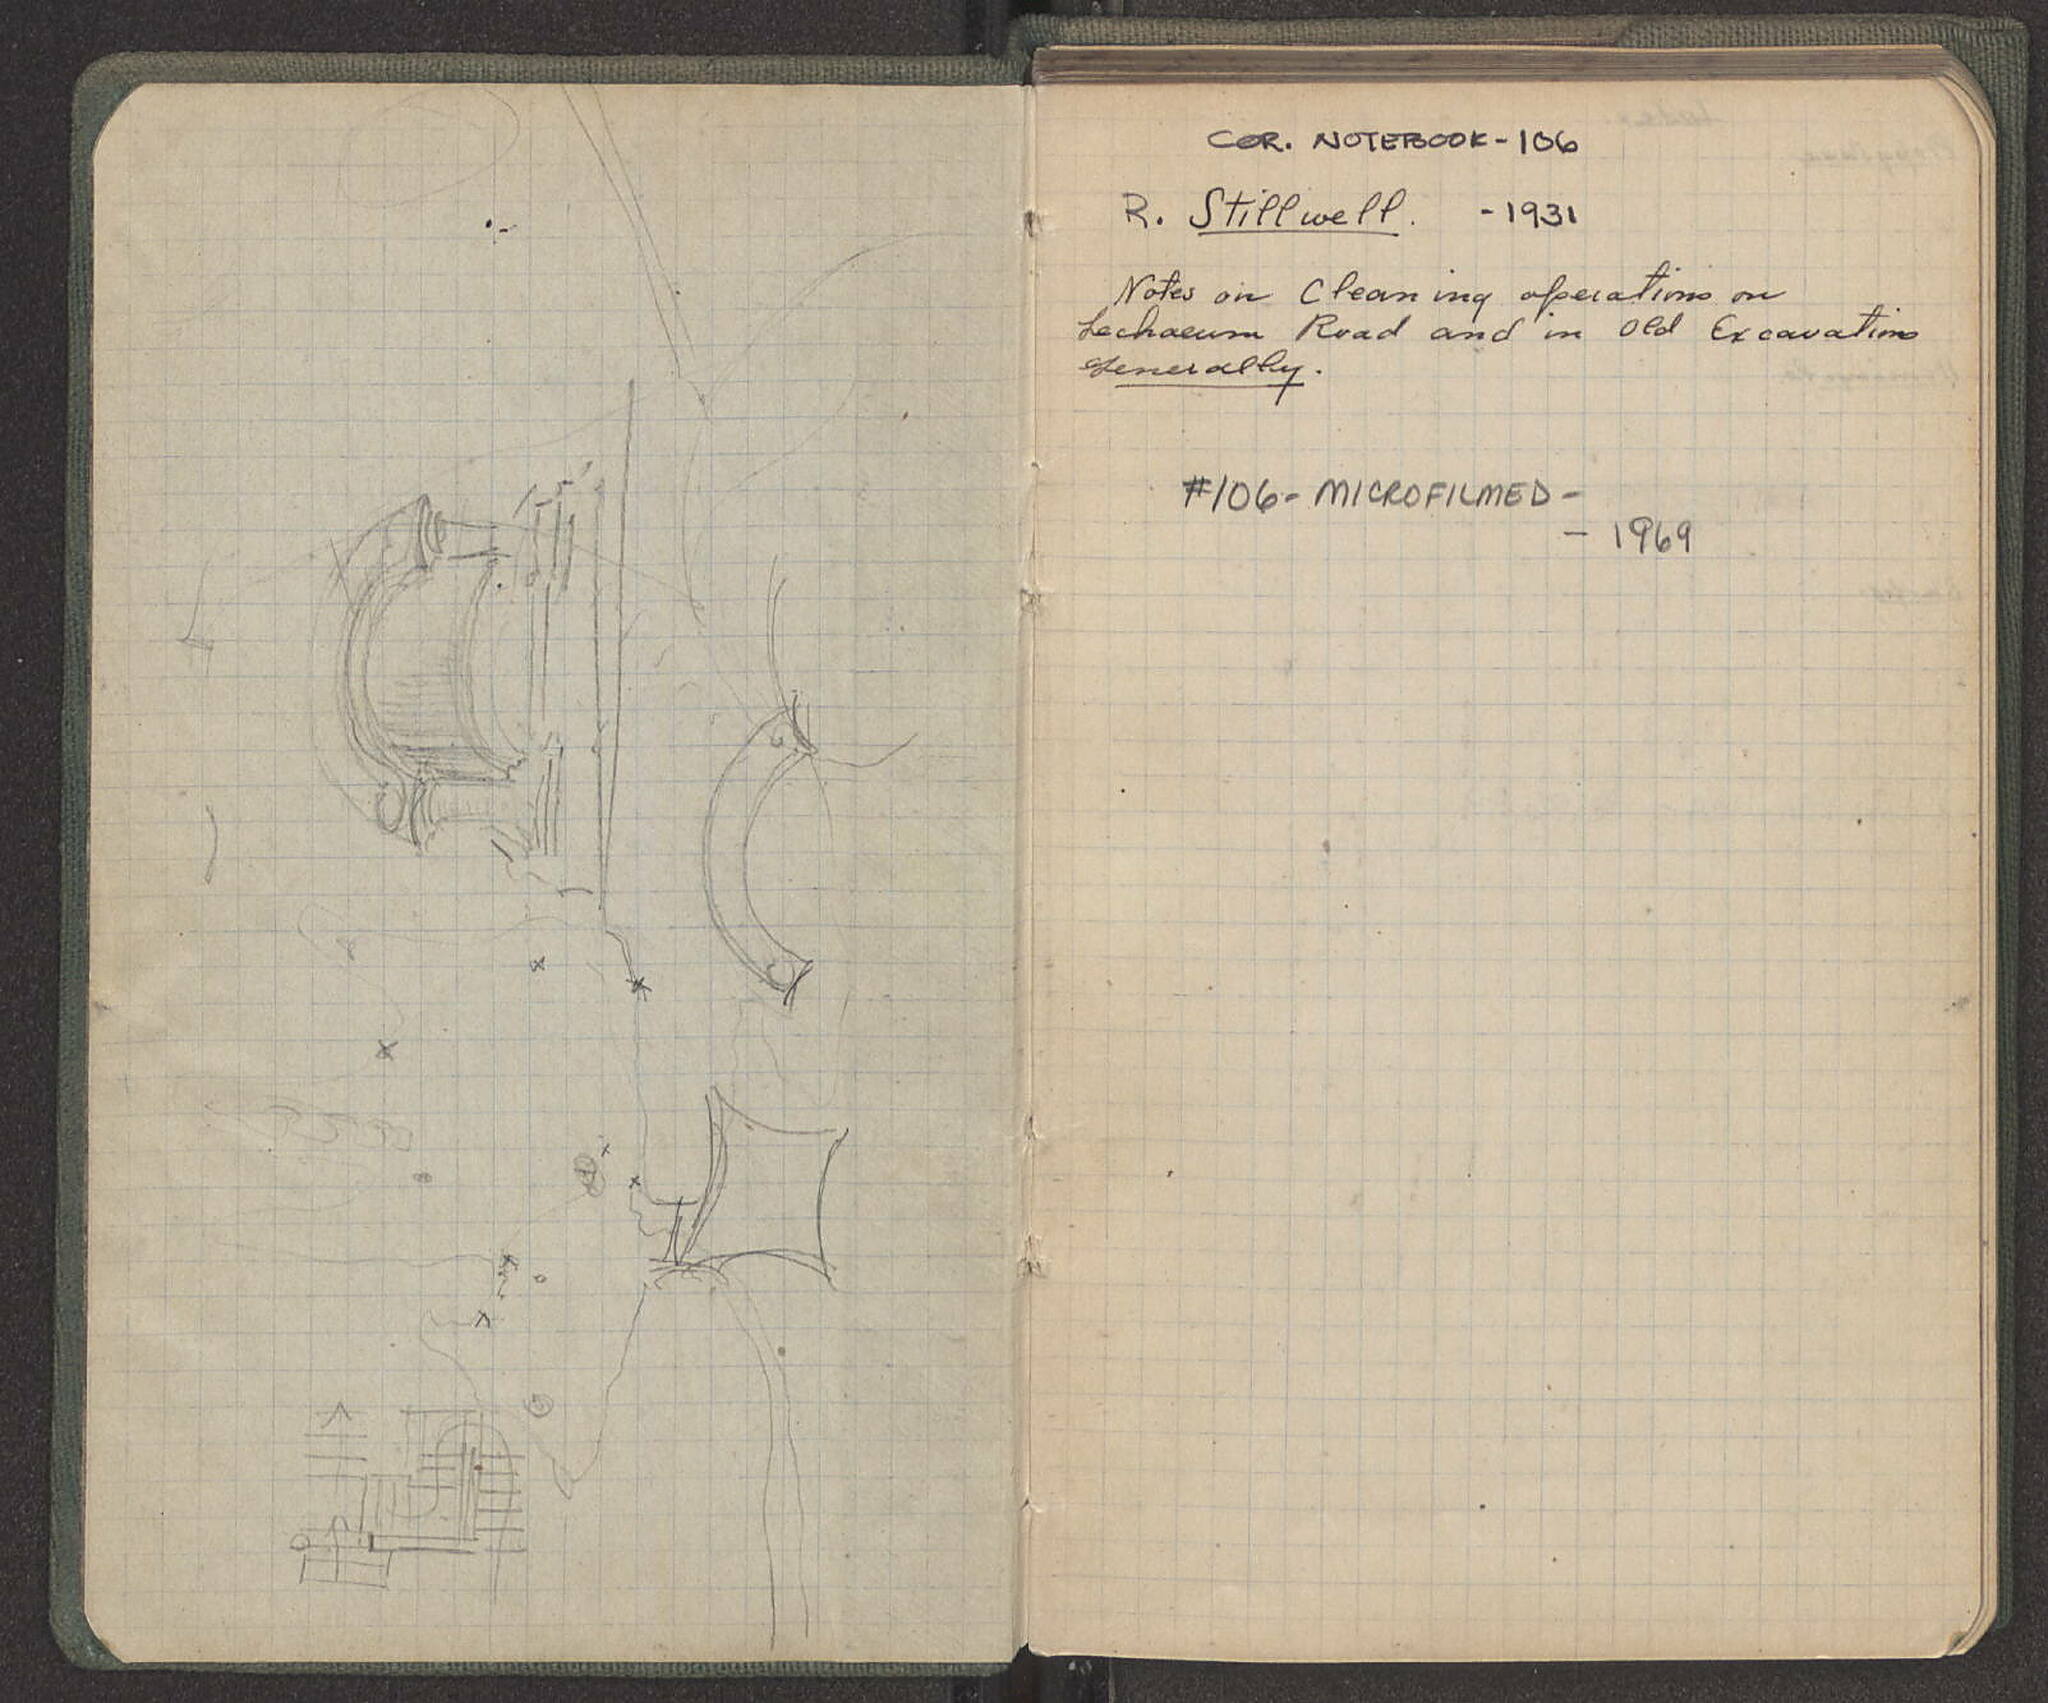 COR. NOTEBOOK-106
R. Stillwell. -1931
Notes on Cleaning operations on
Lechaeum Road and in Old Excavations
Generally.
#106- MICROFILMED -
- 1969